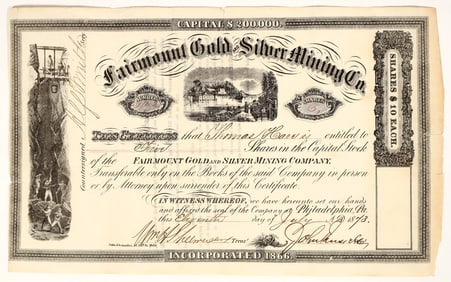 CAPITAL $200,000.
Fairmount Gold and Silver Mining Co.
NUMBER
SHARES
SHARES $10 EACH.
Countersigned
This Certifies that Thomas is entitled to
Shares in the Capital Stock
of the FAIRMOUNT GOLD AND SILVER MINING COMPANY,
Transferable only on the Books of the said Company in person
or by Attorney upon surrender of this Certificate.
IN WITNESS WHEREOF, we have hereunto set our hands
and affixed the seal of the Company at Philadelphia, Pa
this day of July 1873
Wm Treas
INCORPORATED 1866.